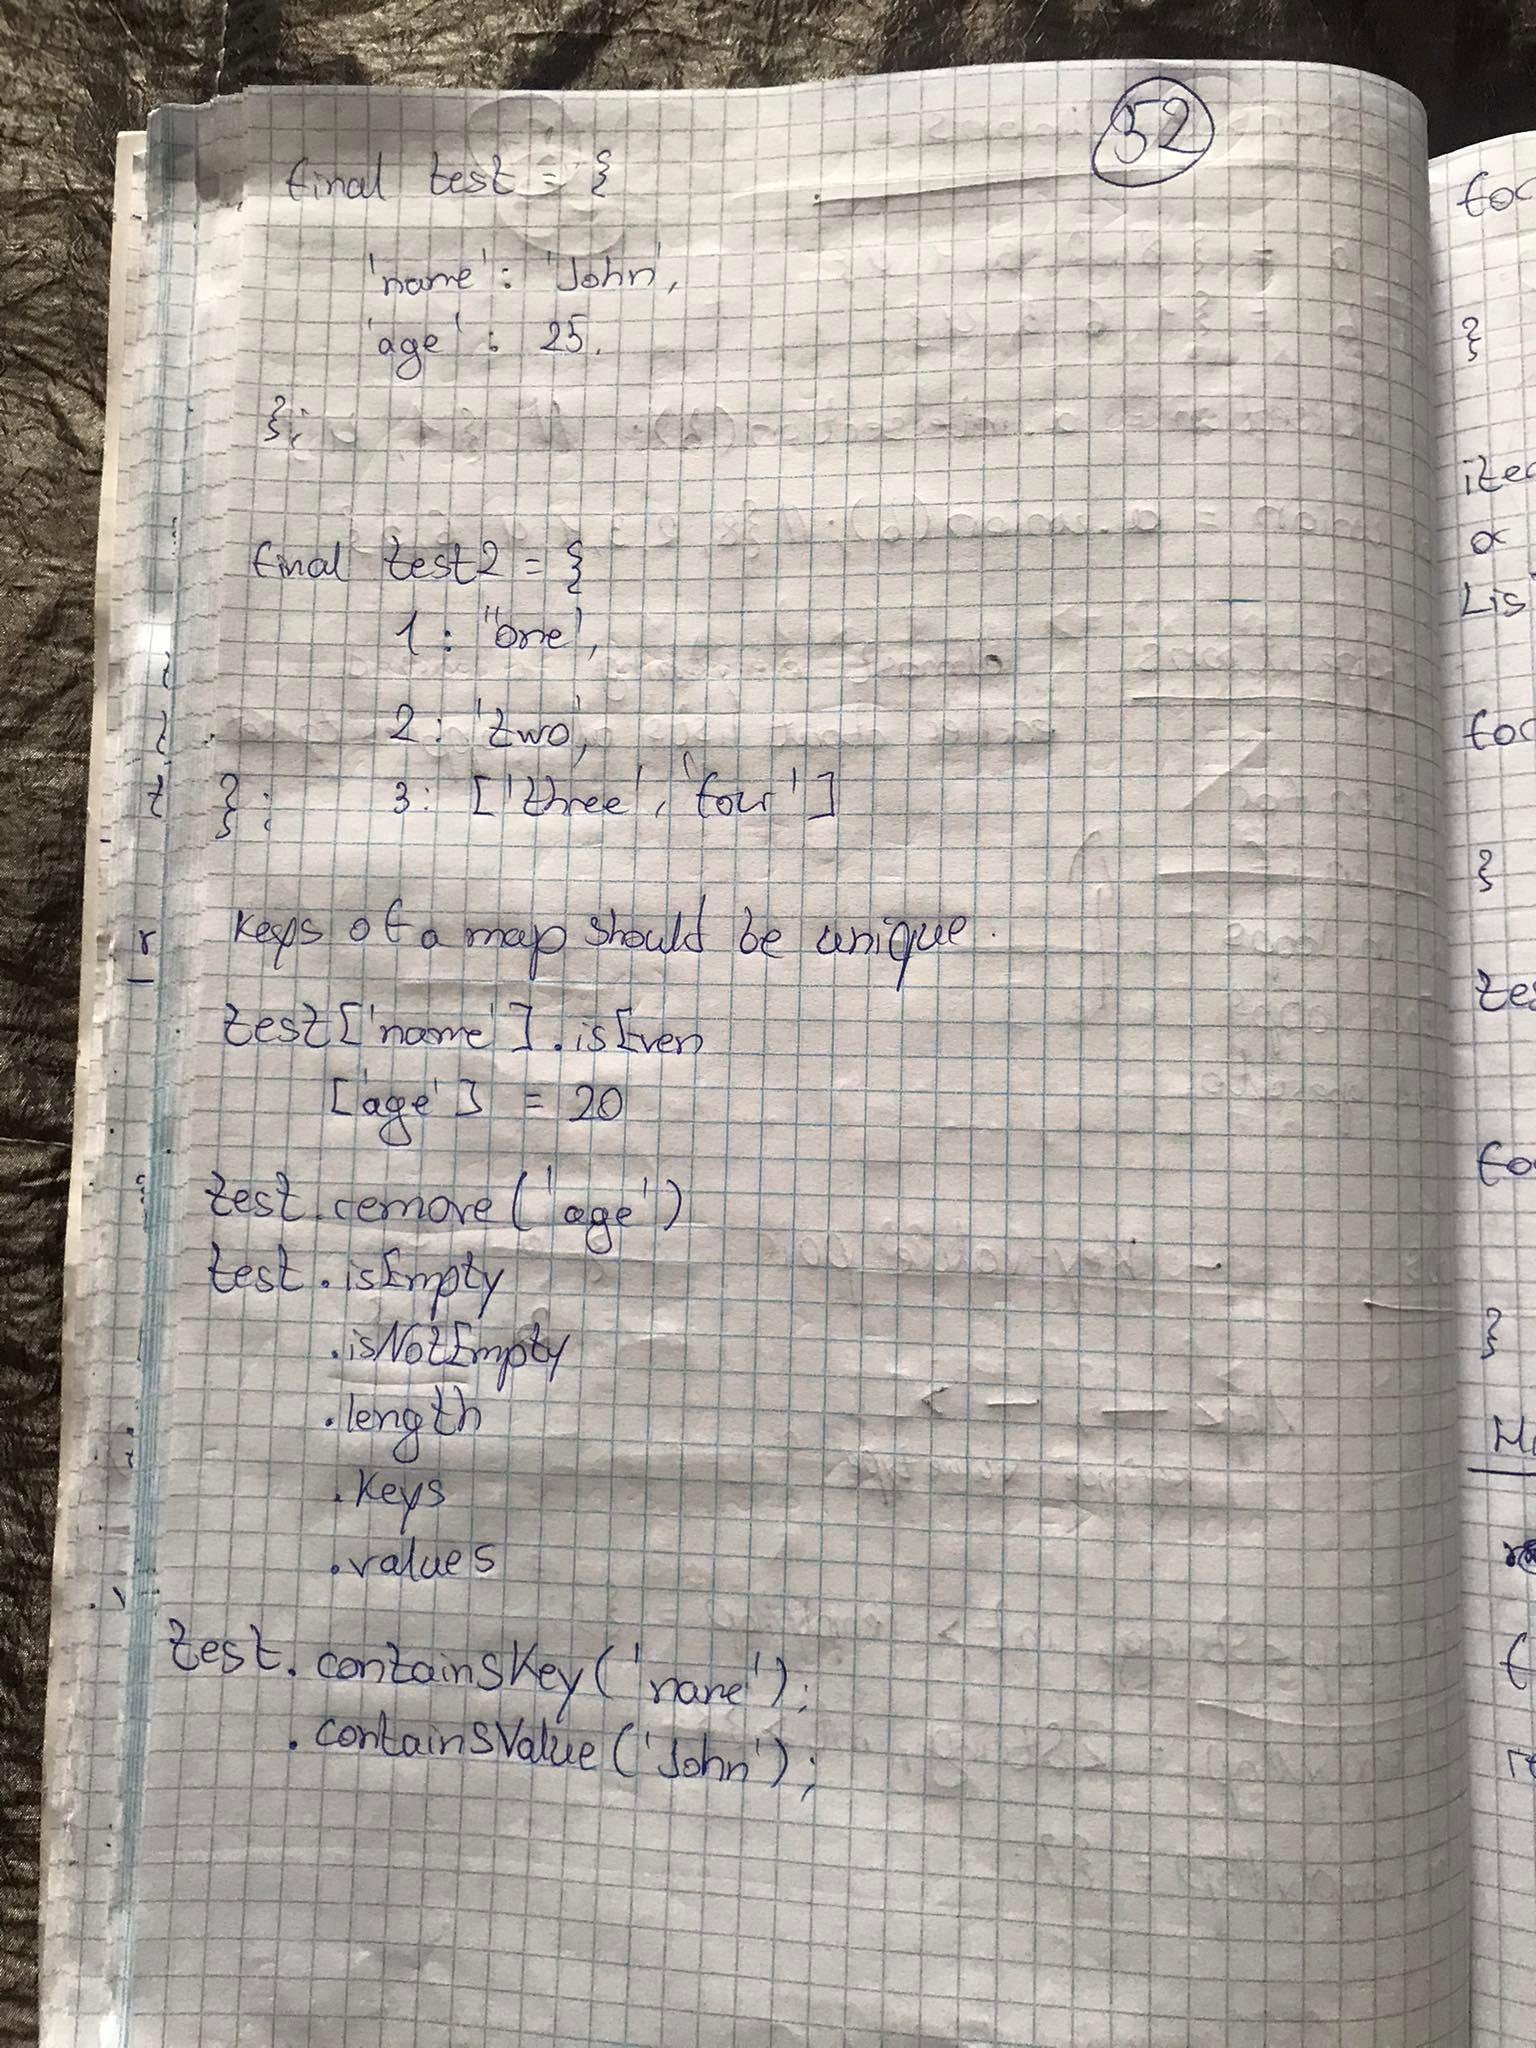 52
final test = {
'name': 'John',
'age': 25.
};
final test2 = {
1: "one',
2: 'two',
}; 3: ['three', 'four']
Keys of a map should be unique.
test['name'].isEven
['age'] = 20
test.remove('age')
test.isEmpty
.isNotEmpty
.length
.keys
.values
test.containsKey('name');
.containsValue('John');
}
}
}